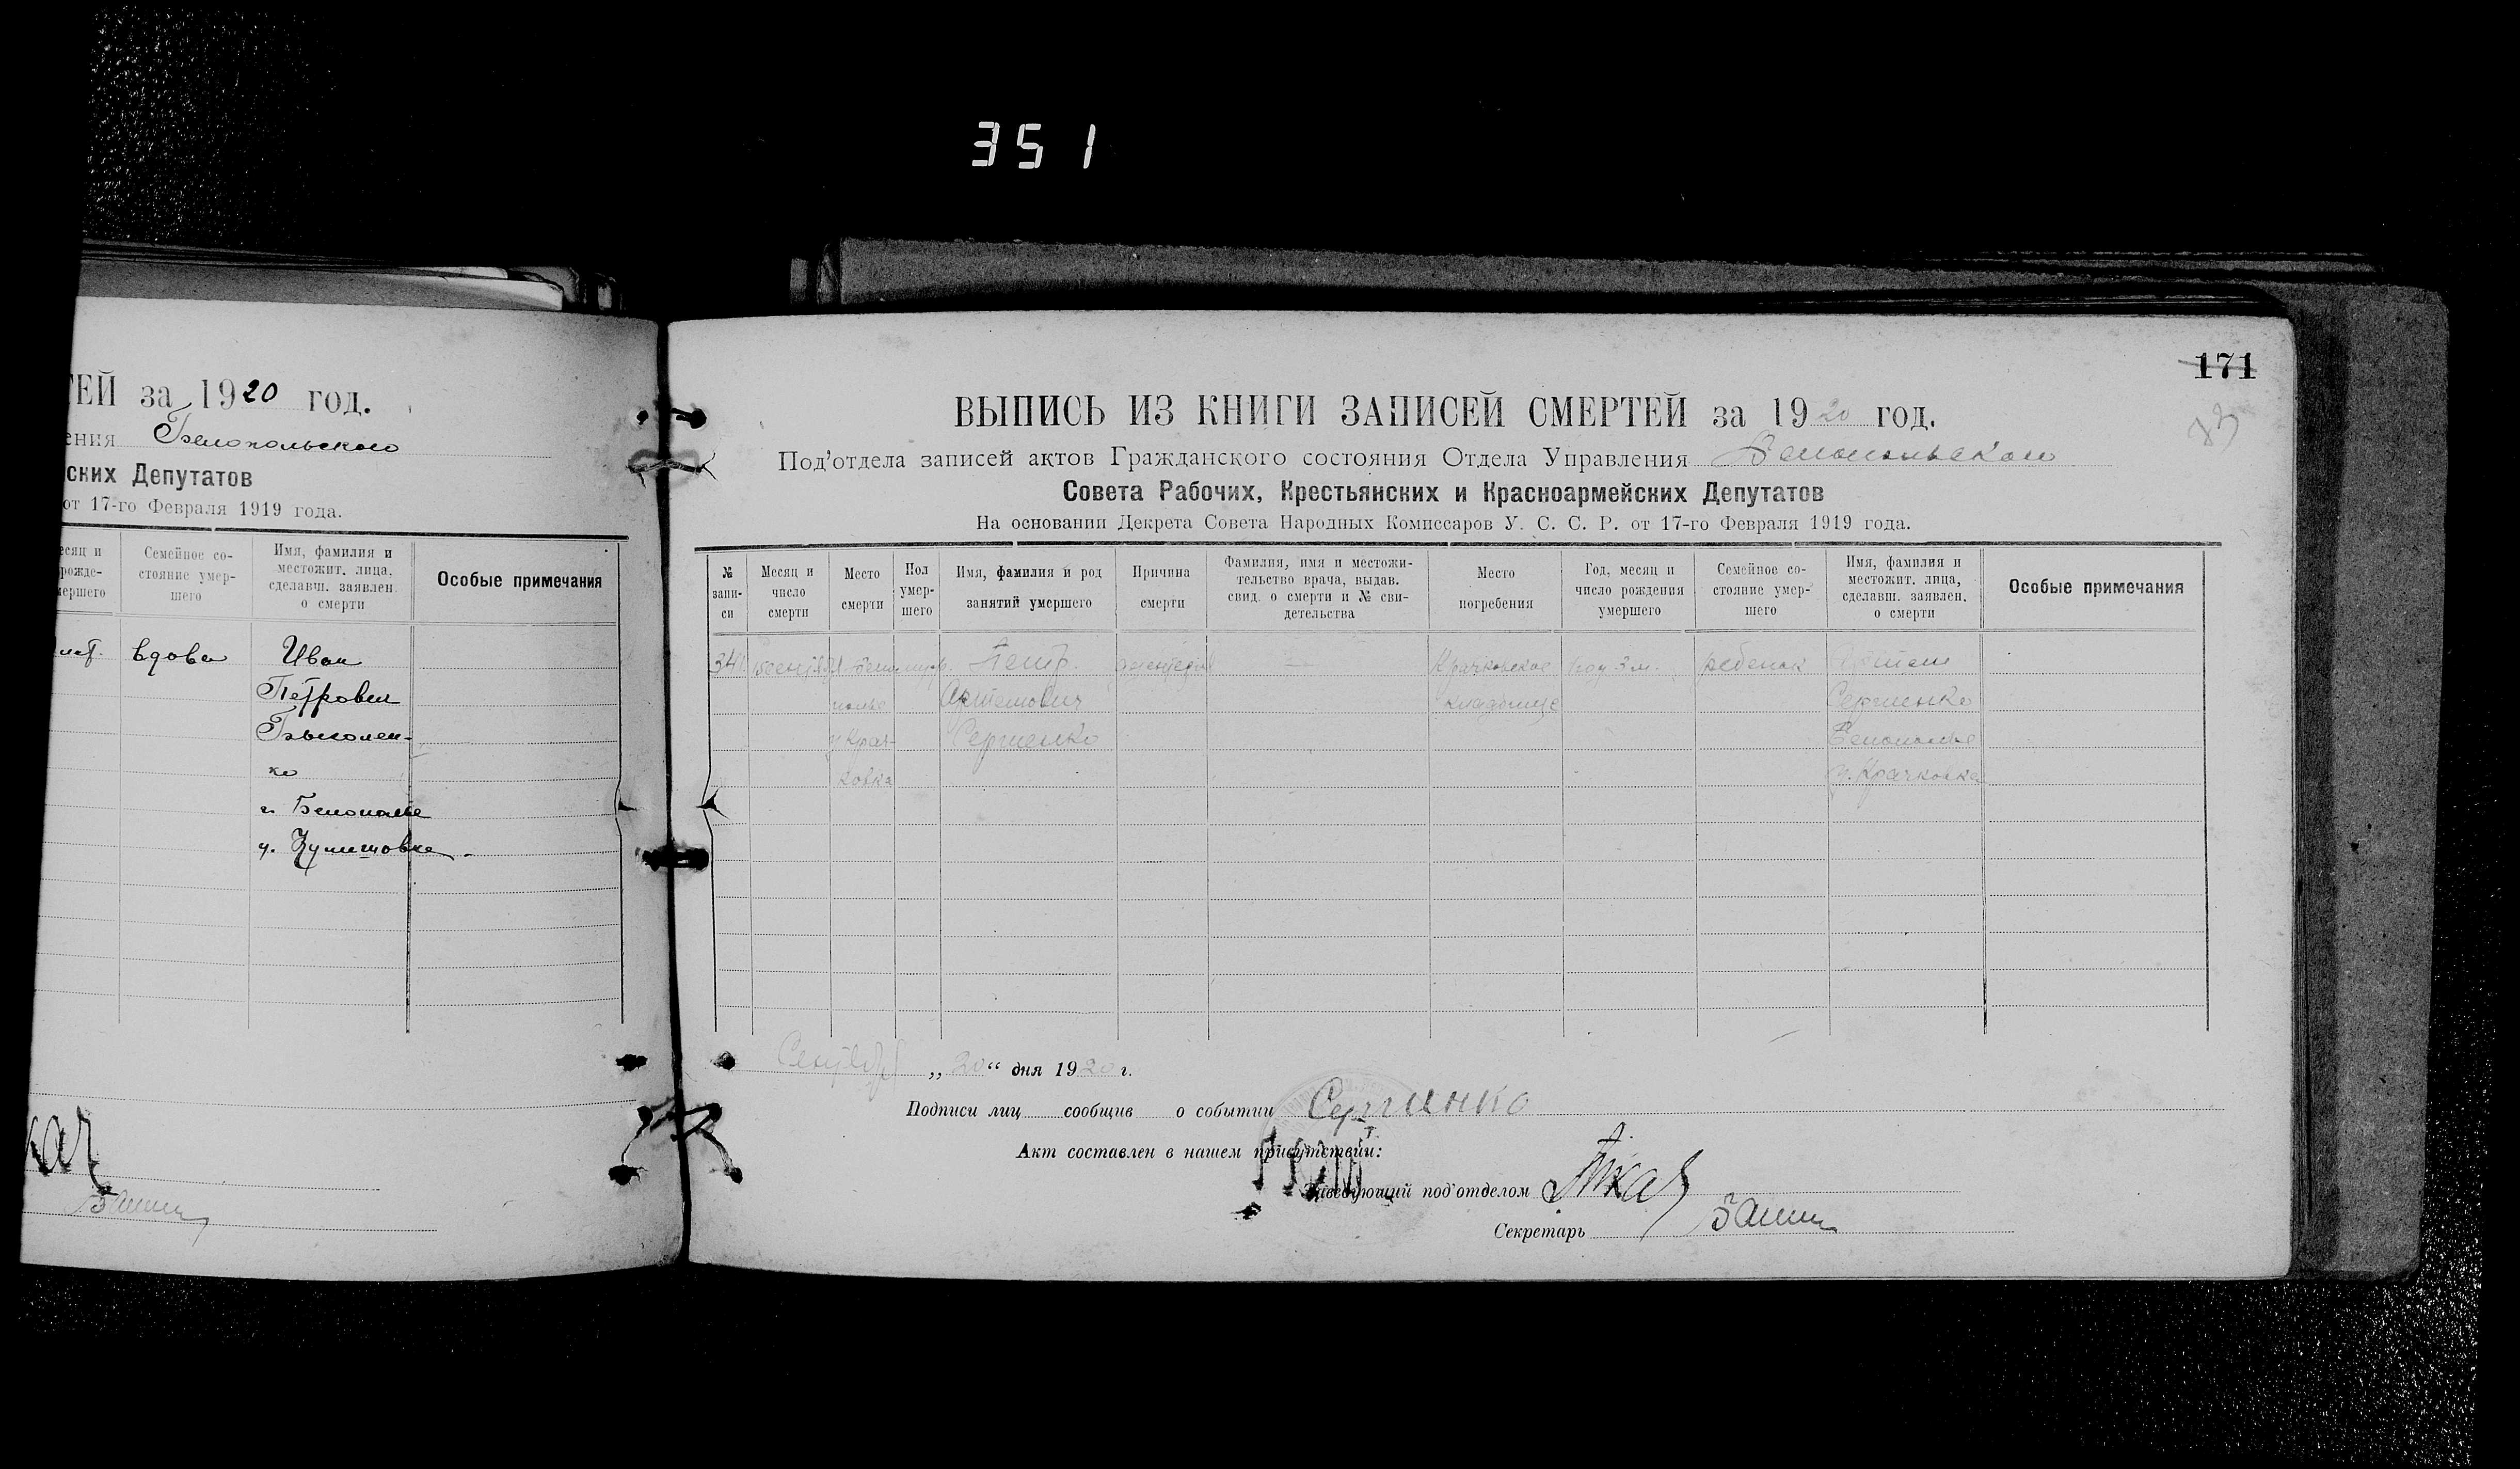 351
ТЕЙ за 1920 год.
ения Белопольского
ских Депутатов
от 17-го Февраля 1919 года.
есяц и
рожде-
мершего
Семейное со-
стояние умер-
шего
Имя, фамилия и
местожит. лица,
сделавш. заявлен.
о смерти
Особые примечания
лет.
вдова
Иван
Петрович
г. Белополье
171
ВЫПИСЬ ИЗ КНИГИ ЗАПИСЕЙ СМЕРТЕЙ за 1920 год.
Под'отдела записей актов Гражданского состояния Отдела Управления Белопольского
Совета Рабочих, Крестьянских и Красноармейских Депутатов
На основании Декрета Совета Народных Комиссаров У. С. С. Р. от 17-го Февраля 1919 года.
№
запи-
си
Месяц и
число
смерти
Место
смерти
Пол
умер-
шего
Имя, фамилия и род
занятий умершего
Причина
смерти
Фамилия, имя и местожи-
тельство врача, выдав.
свид. о смерти и № сви-
детельства
Место
погребения
Год, месяц и
число рождения
умершего
Семейное со-
стояние умер-
шего
Имя, фамилия и
местожит. лица,
сделавш. заявлен.
о смерти
Особые примечания
г. Бело
полье
у. Крач-
ковка
Петр
Артемович
Сергиенко
дизентерия
Крачковское
кладбище
год 3 м.
ребенок
Артем
Сергиенко
Белополье
у. Крачковка
„ 20 “ дня 1920 г.
Подписи лиц сообщив о событии Сергиенко
Акт составлен в нашем присутствии:
Заведующий под'отделом Ткач
Секретарь